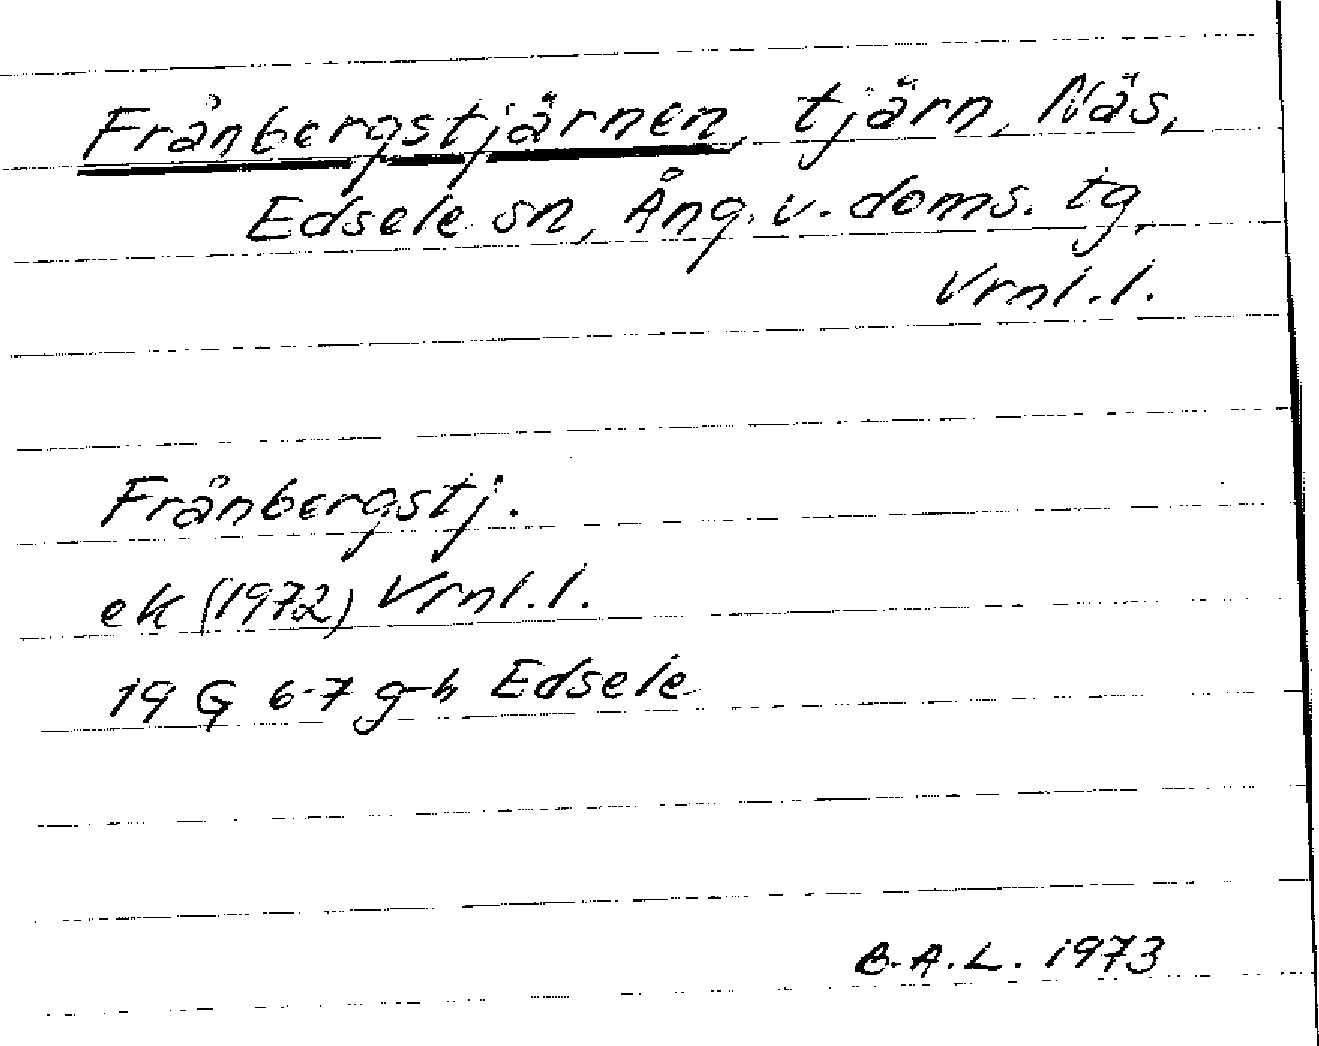 Frånbergstjärnen, tjärn, Näs,
Edsele sn, Ång. v. doms. tg,
Vrnl.l.
Frånbergstj.
ek (1972) Vrnl.l.
19 G 6-7 g-h Edsele
B.A.L. 1973